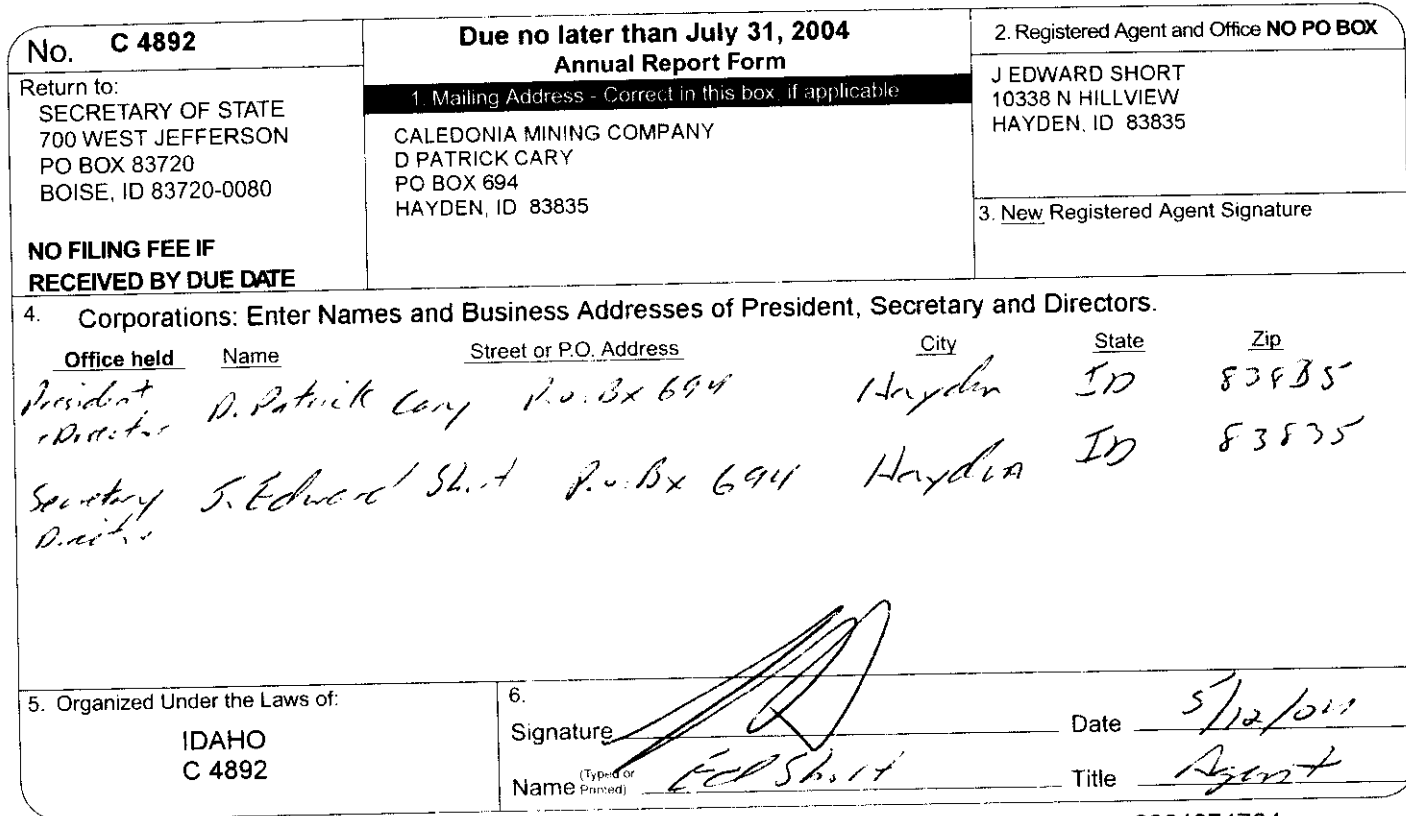 No. C 4892
Return to:
SECRETARY OF STATE
700 WEST JEFFERSON
PO BOX 83720
BOISE, ID 83720-0080
NO FILING FEE IF
RECEIVED BY DUE DATE
Due no later than July 31, 2004
Annual Report Form
1. Mailing Address - Correct in this box, if applicable
CALEDONIA MINING COMPANY
D PATRICK CARY
PO BOX 694
HAYDEN, ID 83835
2. Registered Agent and Office NO PO BOX
J EDWARD SHORT
10338 N HILLVIEW
HAYDEN, ID 83835
3. New Registered Agent Signature
4. Corporations: Enter Names and Business Addresses of President, Secretary and Directors.
Office held Name Street or P.O. Address City State Zip
President D. Patrick Cary P.O. Bx 694 Hayden ID 83835
Director
Secretary J. Edward Short P.O. Bx 694 Hayden ID 83835
Director
5. Organized Under the Laws of:
IDAHO
C 4892
6.
Signature Date 5/12/04
Name (Typed or Printed) Ed Short Title Agent